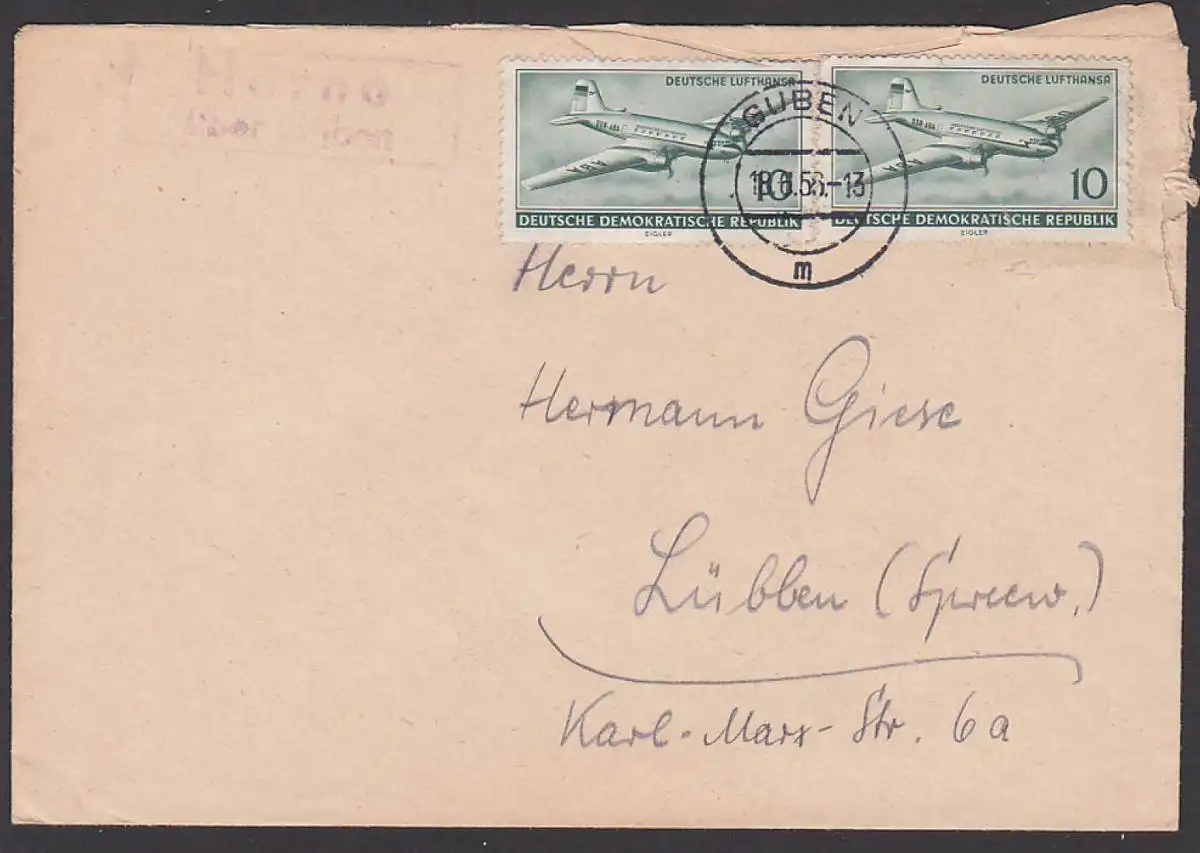 Horno
über Guben
DEUTSCHE LUFTHANSA
DDR-ABA
10
DEUTSCHE DEMOKRATISCHE REPUBLIK
EIGLER
DEUTSCHE LUFTHANSA
DDR-ABA
10
DEUTSCHE DEMOKRATISCHE REPUBLIK
EIGLER
GUBEN
-13
m
Herrn
Hermann Giese
Lübben (Spreew.)
Karl-Marx-Str. 6a